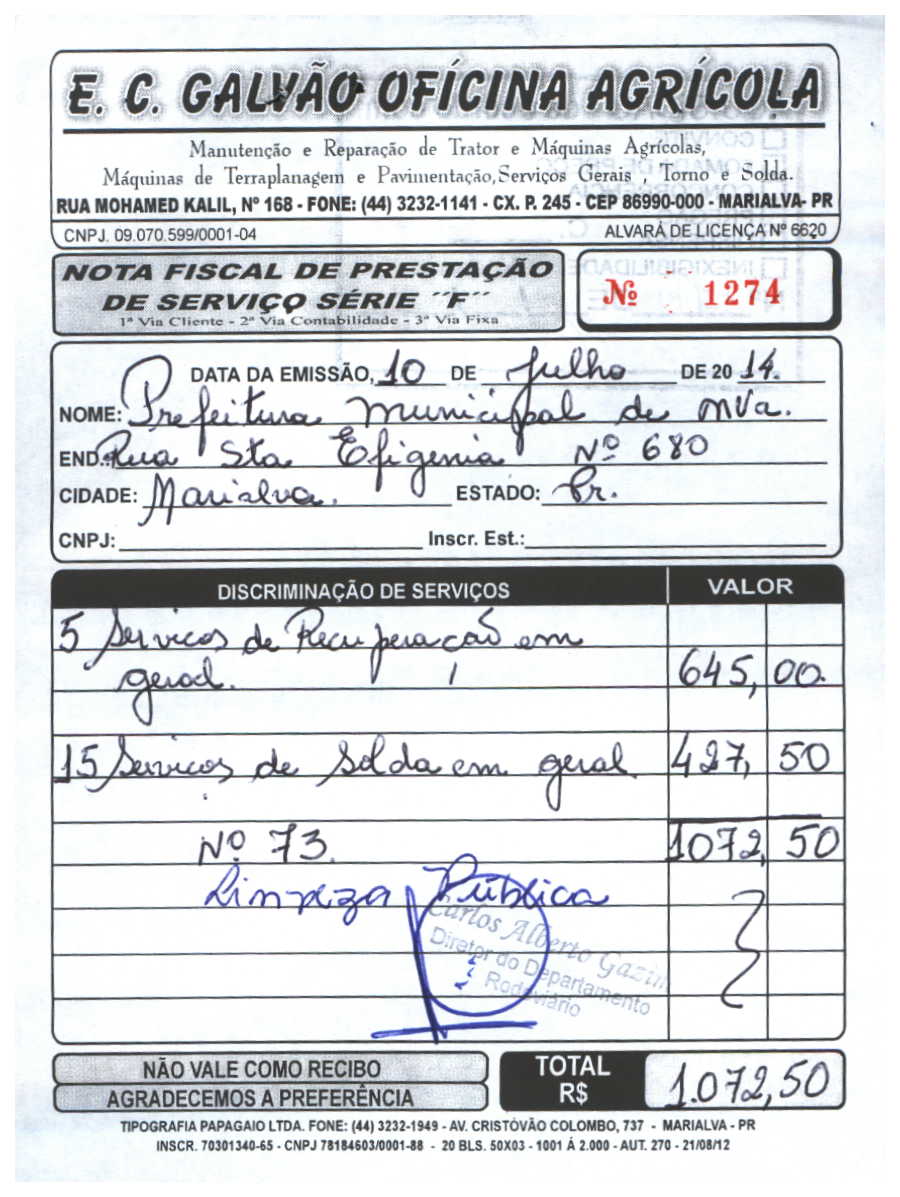 E. C. GALVÃO OFÍCINA AGRÍCOLA
Manutenção e Reparação de Trator e Máquinas Agrícolas,
Máquinas de Terraplanagem e Pavimentação, Serviços Gerais , Torno e Solda.
RUA MOHAMED KALIL, Nº 168 - FONE: (44) 3232-1141 - CX. P. 245 - CEP 86990-000 - MARIALVA- PR
CNPJ. 09.070.599/0001-04 ALVARÁ DE LICENÇA Nº 6620
NOTA FISCAL DE PRESTAÇÃO
DE SERVIÇO SÉRIE ´´F´´
1ª Via Cliente - 2ª Via Contabilidade - 3ª Via Fixa
Nº 1274
DATA DA EMISSÃO, 10 DE Julho DE 20 14.
NOME: Prefeitura Municipal de mva.
END. Rua Sta Efigenia Nº 680
CIDADE: Marialva. ESTADO: Pr.
CNPJ: Inscr. Est.:
DISCRIMINAÇÃO DE SERVIÇOS VALOR
5 Servicos de Recuperação em
geral. 645,00.
15 Servicos de Solda em geral 427,50
1072,50
Nº 73.
Limpeza Pública
Carlos Alberto Gazim
Diretor do Departamento
Rodoviário
NÃO VALE COMO RECIBO
AGRADECEMOS A PREFERÊNCIA
TOTAL
R$ 1.072,50
TIPOGRAFIA PAPAGAIO LTDA. FONE: (44) 3232-1949 - AV. CRISTÓVÃO COLOMBO, 737 - MARIALVA - PR
INSCR. 70301340-65 - CNPJ 78184603/0001-88 - 20 BLS. 50X03 - 1001 Á 2.000 - AUT. 270 - 21/08/12